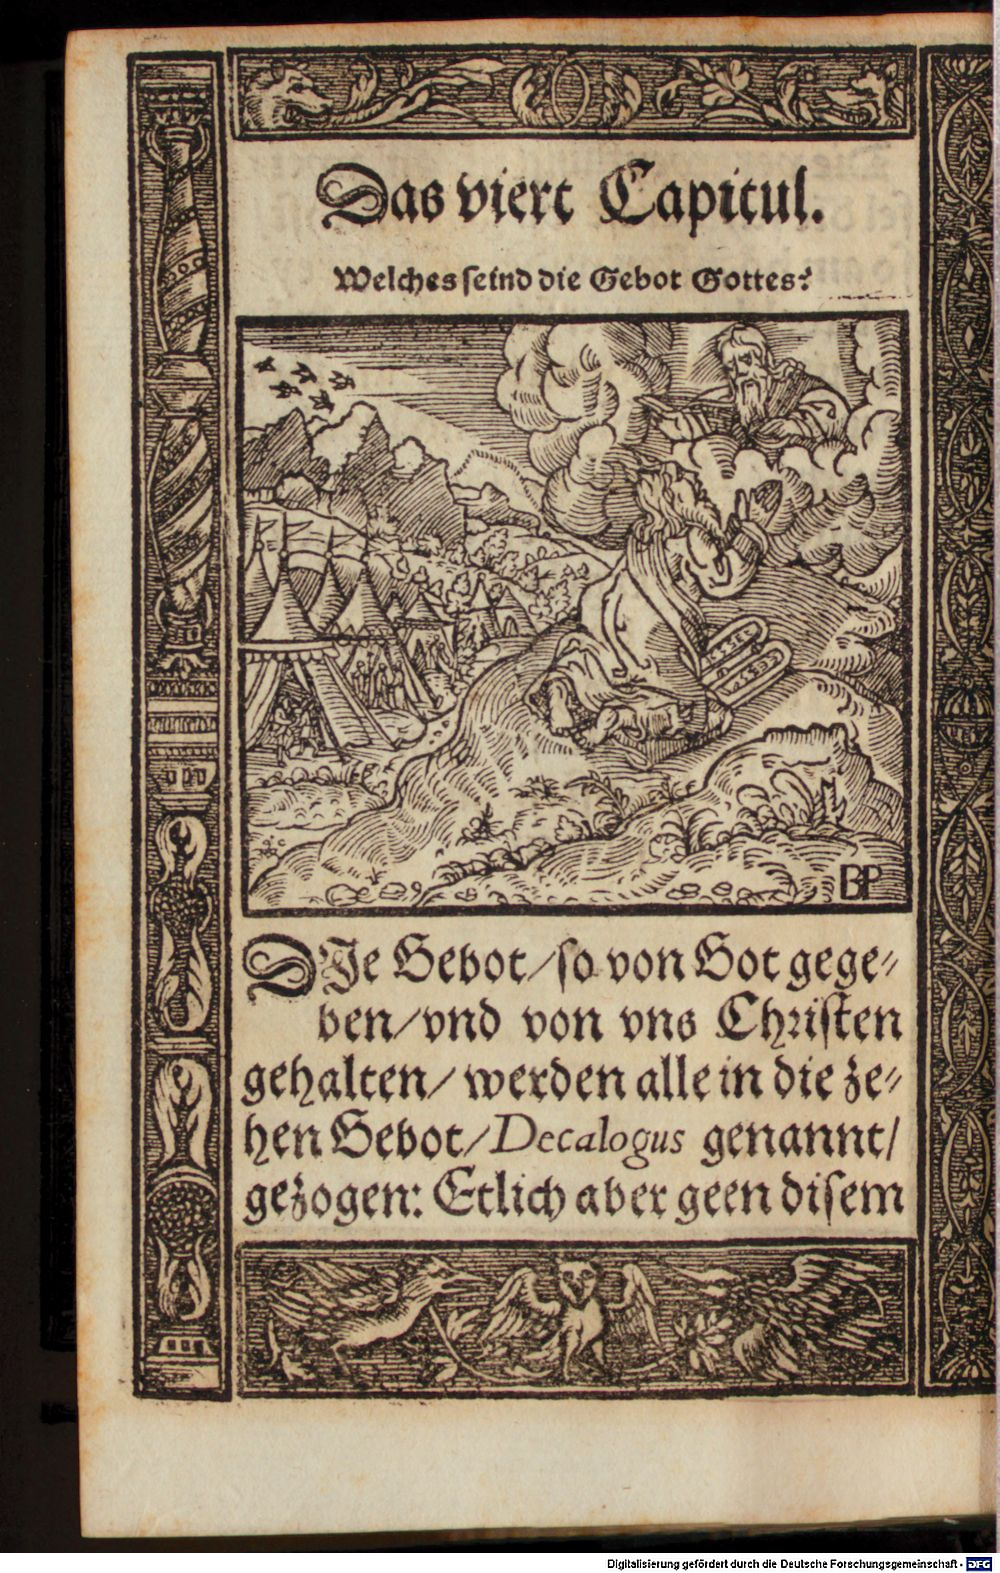 Das viert Capitul.
Welches seind die Gebot Gottes?
BP
DIe Gebot/so von Got gege⸗
ben/vnd von vns Christen
gehalten/ werden alle in die ze⸗
hen Gebot/Decalogus genannt/
gezogen: Etlich aber geen disem
Digitalisierung gefördert durch die Deutsche Forschungsgemeinschaft - DFG